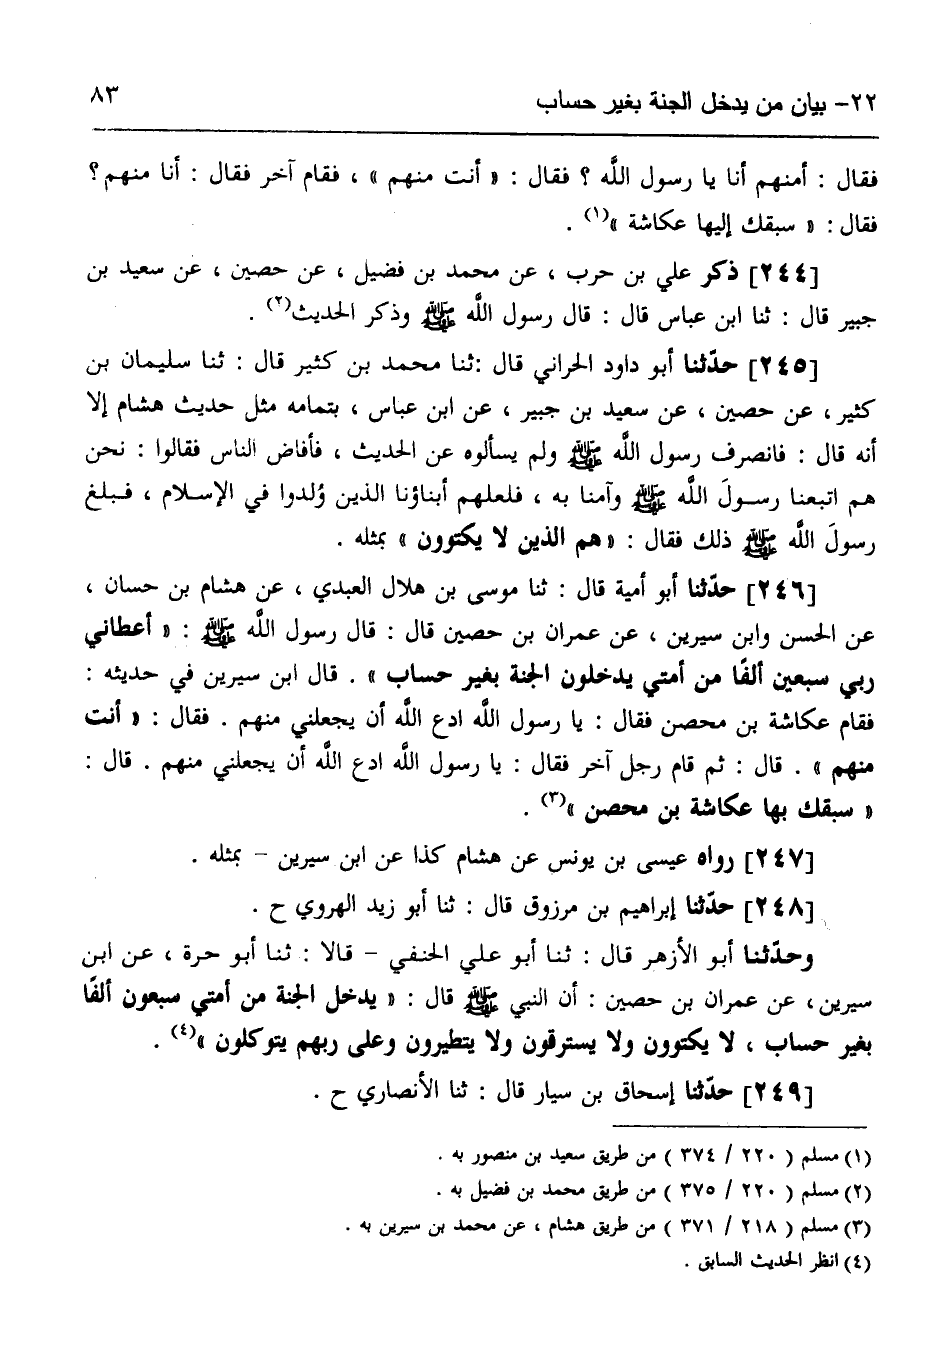 ٢٢- بيان من يدخل الجنة بغير حساب ٨٣
فقال : أمنهم أنا يا رسول اللَّه ؟ فقال : « أنت منهم » ، فقام آخر فقال : أنا منهم ؟
فقال : « سبقك إليها عكاشة »(١) .
[٢٤٤] ذكر علي بن حرب ، عن محمد بن فضيل ، عن حصين ، عن سعيد بن
جبير قال : ثنا ابن عباس قال : قال رسول اللَّه ﷺ وذكر الحديث(٢) .
[٢٤٥] حدّثنا أبو داود الحراني قال :ثنا محمد بن كثير قال : ثنا سليمان بن
كثير ، عن حصين ، عن سعيد بن جبير ، عن ابن عباس ، بتمامه مثل حديث هشام إلا
أنه قال : فانصرف رسول اللَّه ﷺ ولم يسألوه عن الحديث ، فأفاض الناس فقالوا : نحن
هم اتبعنا رسولَ اللَّه ﷺ وآمنا به ، فلعلهم أبناؤنا الذين وُلدوا في الإسلام ، فبلغ
رسولَ اللَّه ﷺ ذلك فقال : « هم الذين لا يكتوون » بمثله .
[٢٤٦] حدّثنا أبو أمية قال : ثنا موسى بن هلال العبدي ، عن هشام بن حسان ،
عن الحسن وابن سيرين ، عن عمران بن حصين قال : قال رسول اللَّه ﷺ : « أعطاني
ربي سبعين ألفًا من أمتي يدخلون الجنة بغير حساب » . قال ابن سيرين في حديثه :
فقام عكاشة بن محصن فقال : يا رسول اللَّه ادع اللَّه أن يجعلني منهم . فقال : « أنت
منهم » . قال : ثم قام رجل آخر فقال : يا رسول اللَّه ادع اللَّه أن يجعلني منهم . قال :
« سبقك بها عكاشة بن محصن »(٣) .
[٢٤٧] رواه عيسى بن يونس عن هشام كذا عن ابن سيرين – بمثله .
[٢٤٨] حدّثنا إبراهيم بن مرزوق قال : ثنا أبو زيد الهروي ح .
وحدّثنا أبو الأزهر قال : ثنا أبو علي الحنفي – قالا : ثنا أبو حرة ، عن ابن
سيرين ، عن عمران بن حصين : أن النبي ﷺ قال : « يدخل الجنة من أمتي سبعون ألفًا
بغير حساب ، لا يكتوون ولا يسترقون ولا يتطيرون وعلى ربهم يتوكلون »(٤) .
[٢٤٩] حدّثنا إسحاق بن سيار قال : ثنا الأنصاري ح .
(١) مسلم ( ٢٢٠ / ٣٧٤ ) من طريق سعيد بن منصور به .
(٢) مسلم ( ٢٢٠ / ٣٧٥ ) من طريق محمد بن فضيل به .
(٣) مسلم ( ٢١٨ / ٣٧١ ) من طريق هشام ، عن محمد بن سيرين به .
(٤) انظر الحديث السابق .